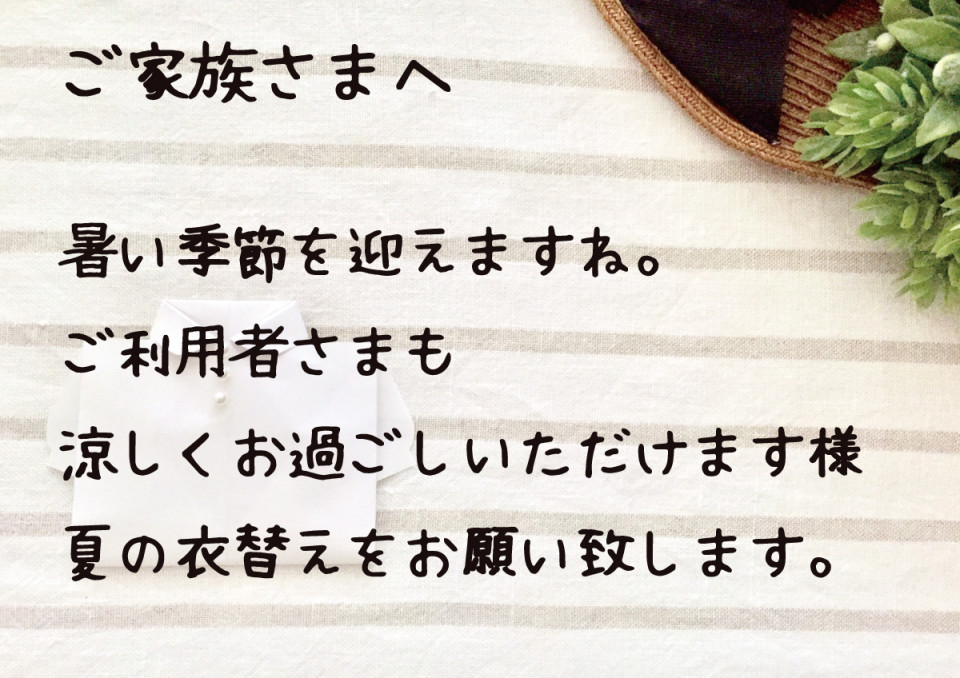 ご家族さまへ
暑い季節を迎えますね。
ご利用者さまも
涼しくお過ごしいただけます様
夏の衣替えをお願い致します。